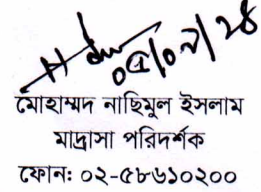 ০৫/০৯/২৪
মোহাম্মদ নাছিমুল ইসলাম
মাদ্রাসা পরিদর্শক
ফোন: ০২-৫৮৬১০২০০